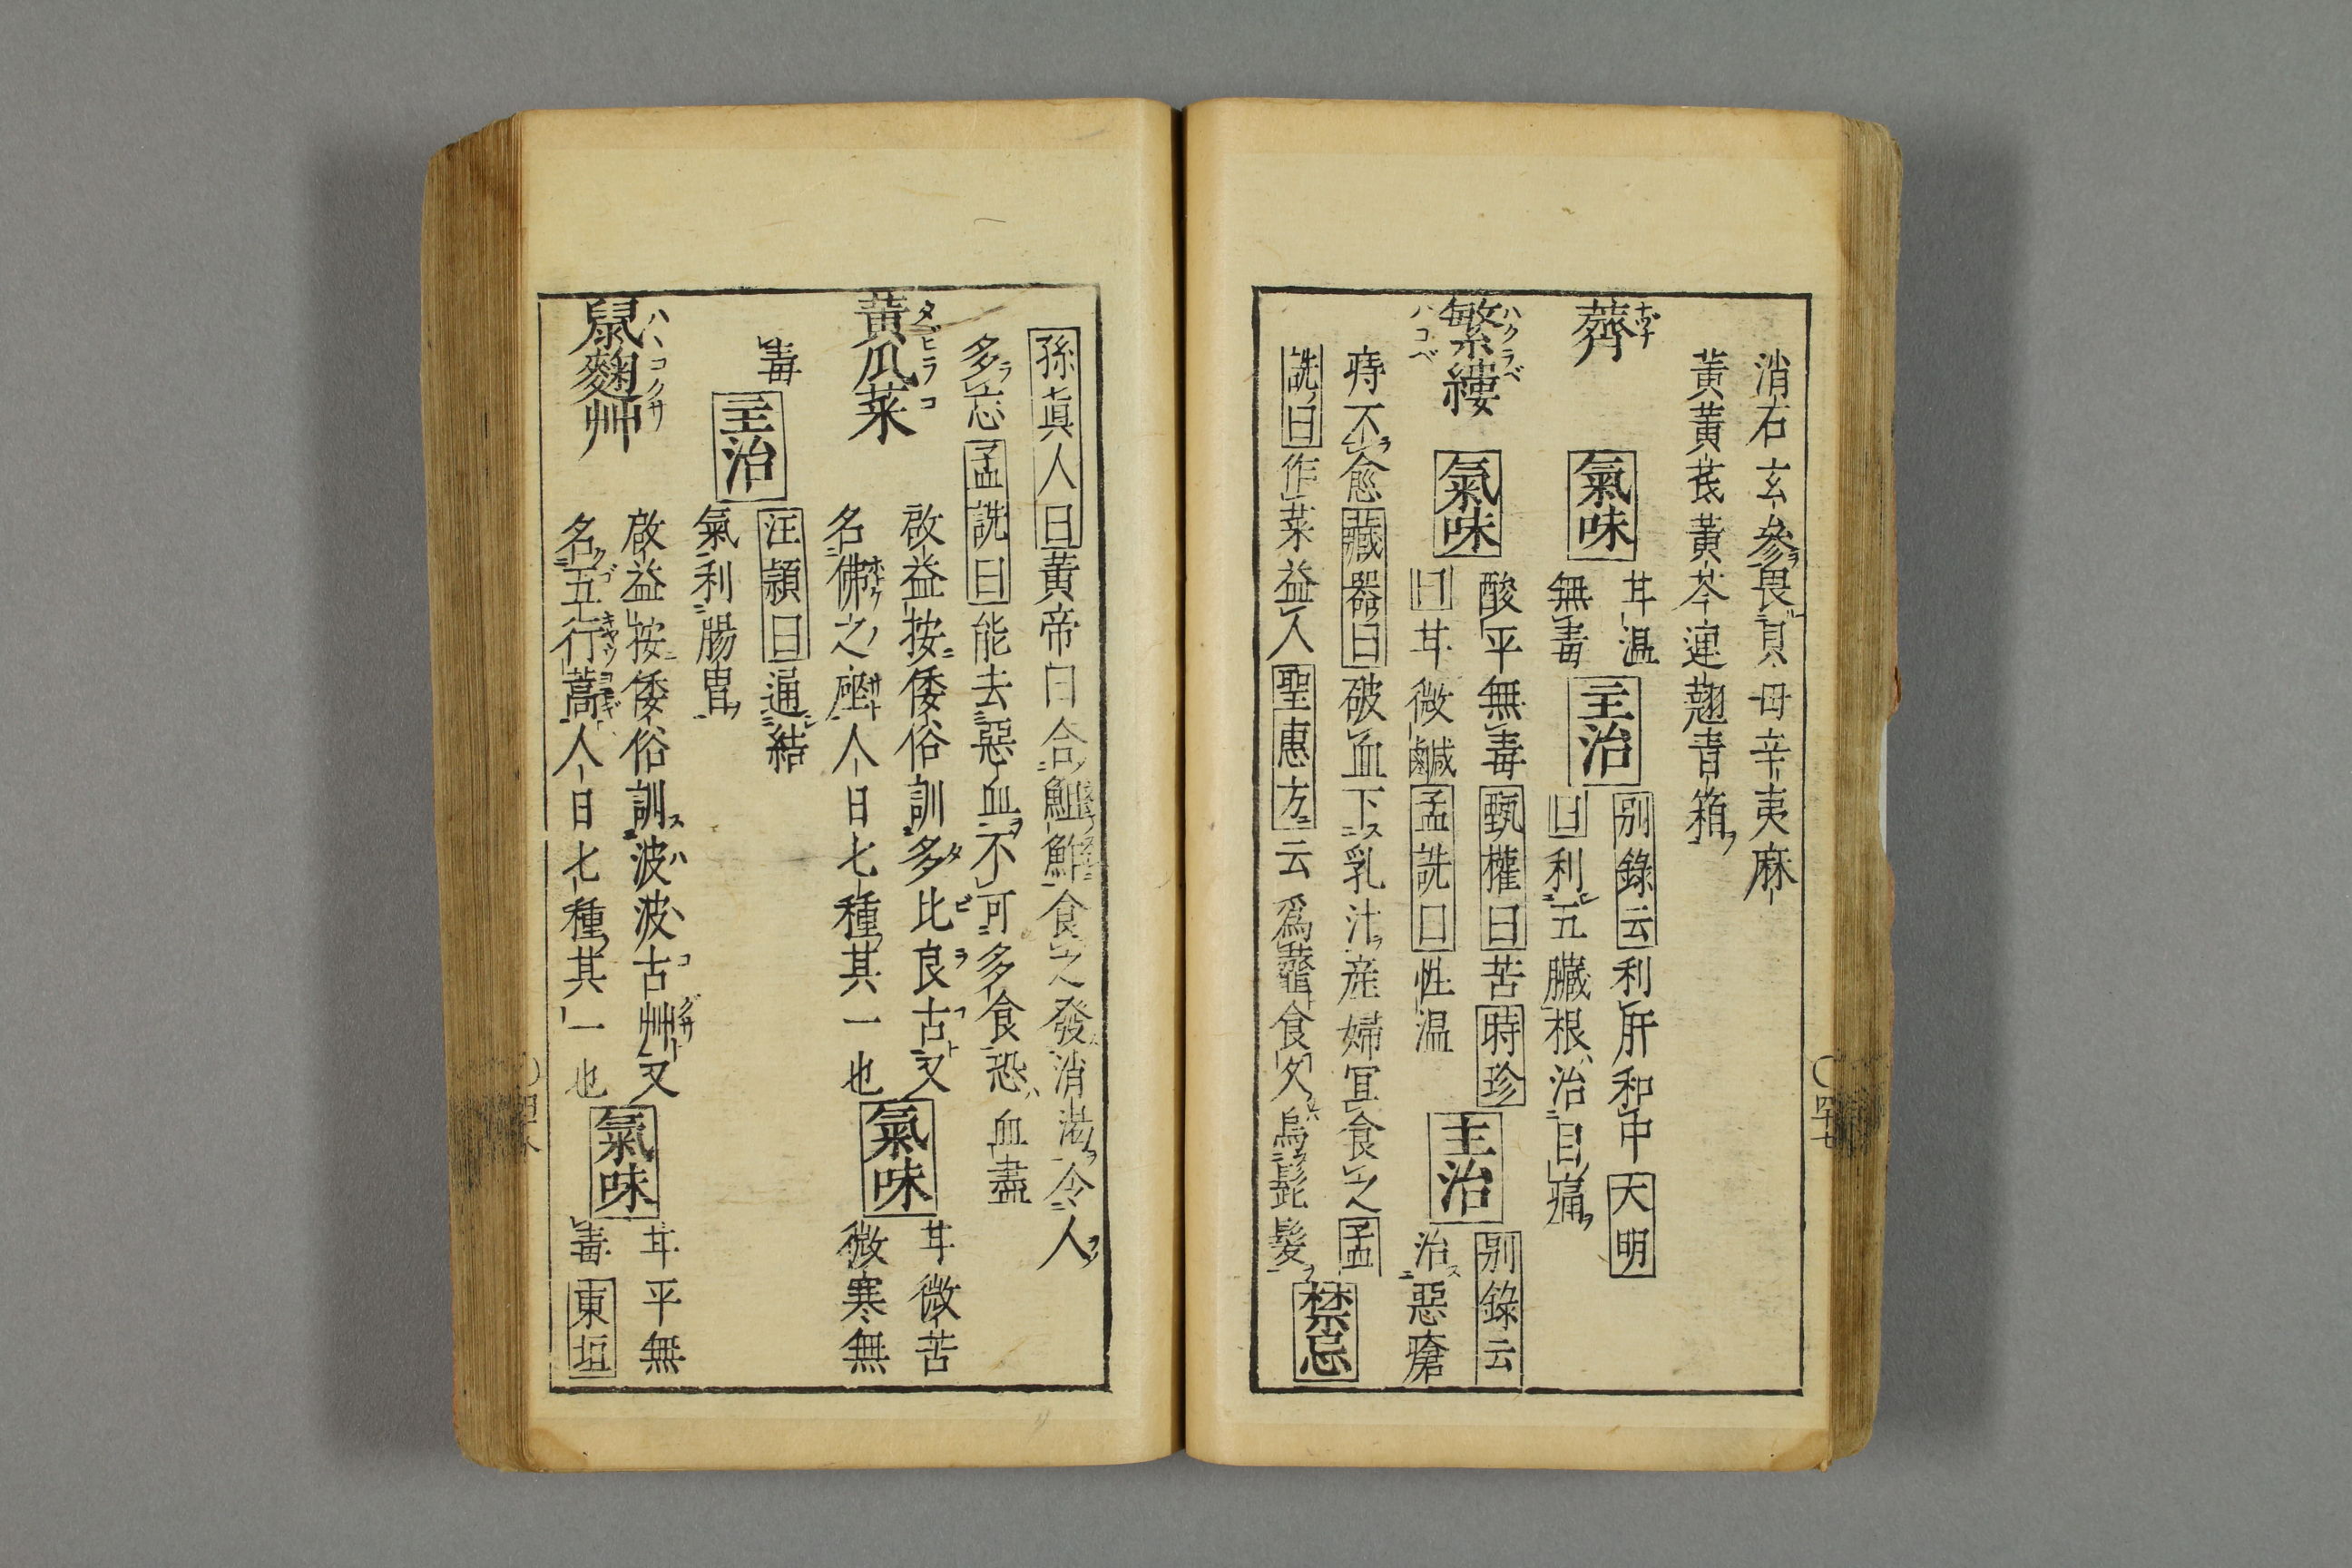 消石玄參畏貝母辛夷麻
黃黃茋黃芩連翹青箱
薺 ナヅナ
氣味
甘温
無毒
主治
別錄云利肝和中大明
曰利五臟根治目痛
繁縷 ハクラベ ハコベ
氣味
酸平無毒甄權曰苦時珍
曰甘微鹹孟詵曰性温
主治
別錄云
治惡瘡
痔不愈藏器曰破血下乳汁産婦冝食之孟
詵曰作菜益人聖惠方云爲虀食久烏髭髮
禁忌
四十七
孫眞人曰黃帝曰合䱉鮓食之發消渇令人
多忘孟詵曰能去惡血不可多食恐血盡
黃瓜菜 タビラコ
啟益按倭俗訓多比良古又
名佛之座人日七種其一也
氣味
甘微苦
微寒無
毒
主治
汪頴曰通結
氣利腸胃
鼠麴艸 ハハコクサ
啟益按倭俗訓波波古艸又
名五行蒿人日七種其一也
氣味
甘平無
毒東垣